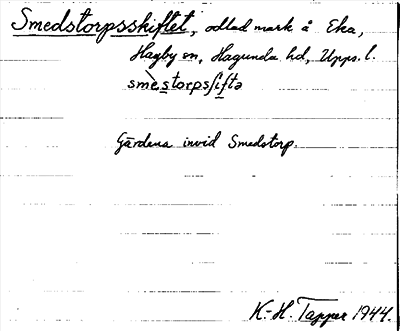 Smedstorpsskiftet, odlad mark å Eka,
Hagby sn, Hagunda hd, Upps. l.
smèstorpsʃiftə
Gärdena invid Smedstorp.
K.-H. Tapper 1944.